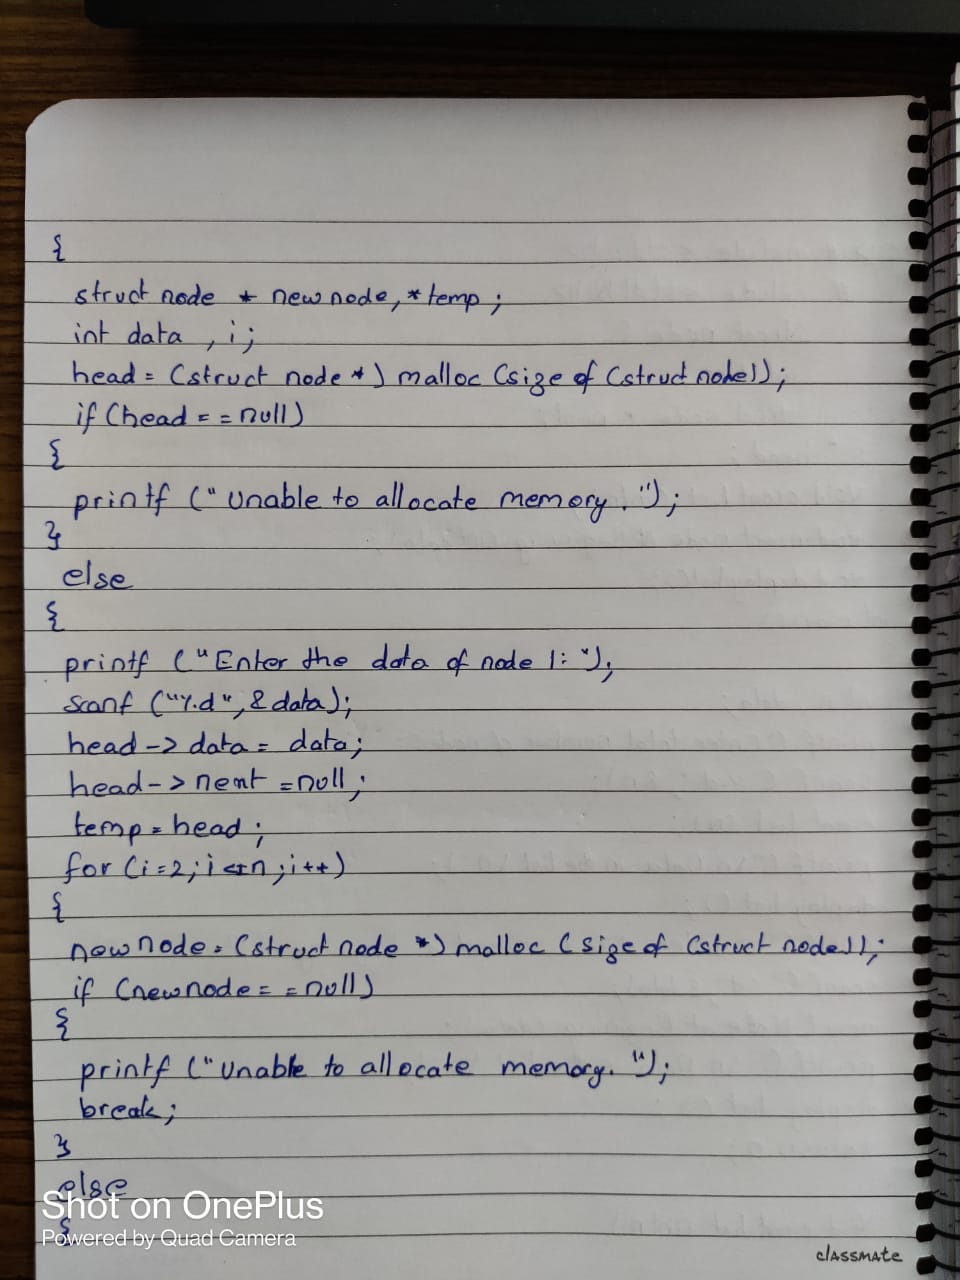 {
struct node * newnode, *temp;
int data , i;
head = (struct node *) malloc (size of (struct node));
if (head = = null)
{
printf (" Unable to allocate memory . ");
}
else
{
printf ("Enter the data of node 1: ");
scanf ("%d", &data);
head -> data = data;
head -> next = null;
temp = head;
for (i=2; i<=n; i++)
{
newnode = (struct node *) malloc (size of (struct node));
if (newnode = = null)
{
printf ("Unable to allocate memory. ");
break;
}
else
{
Shot on OnePlus
Powered by Quad Camera
classmate